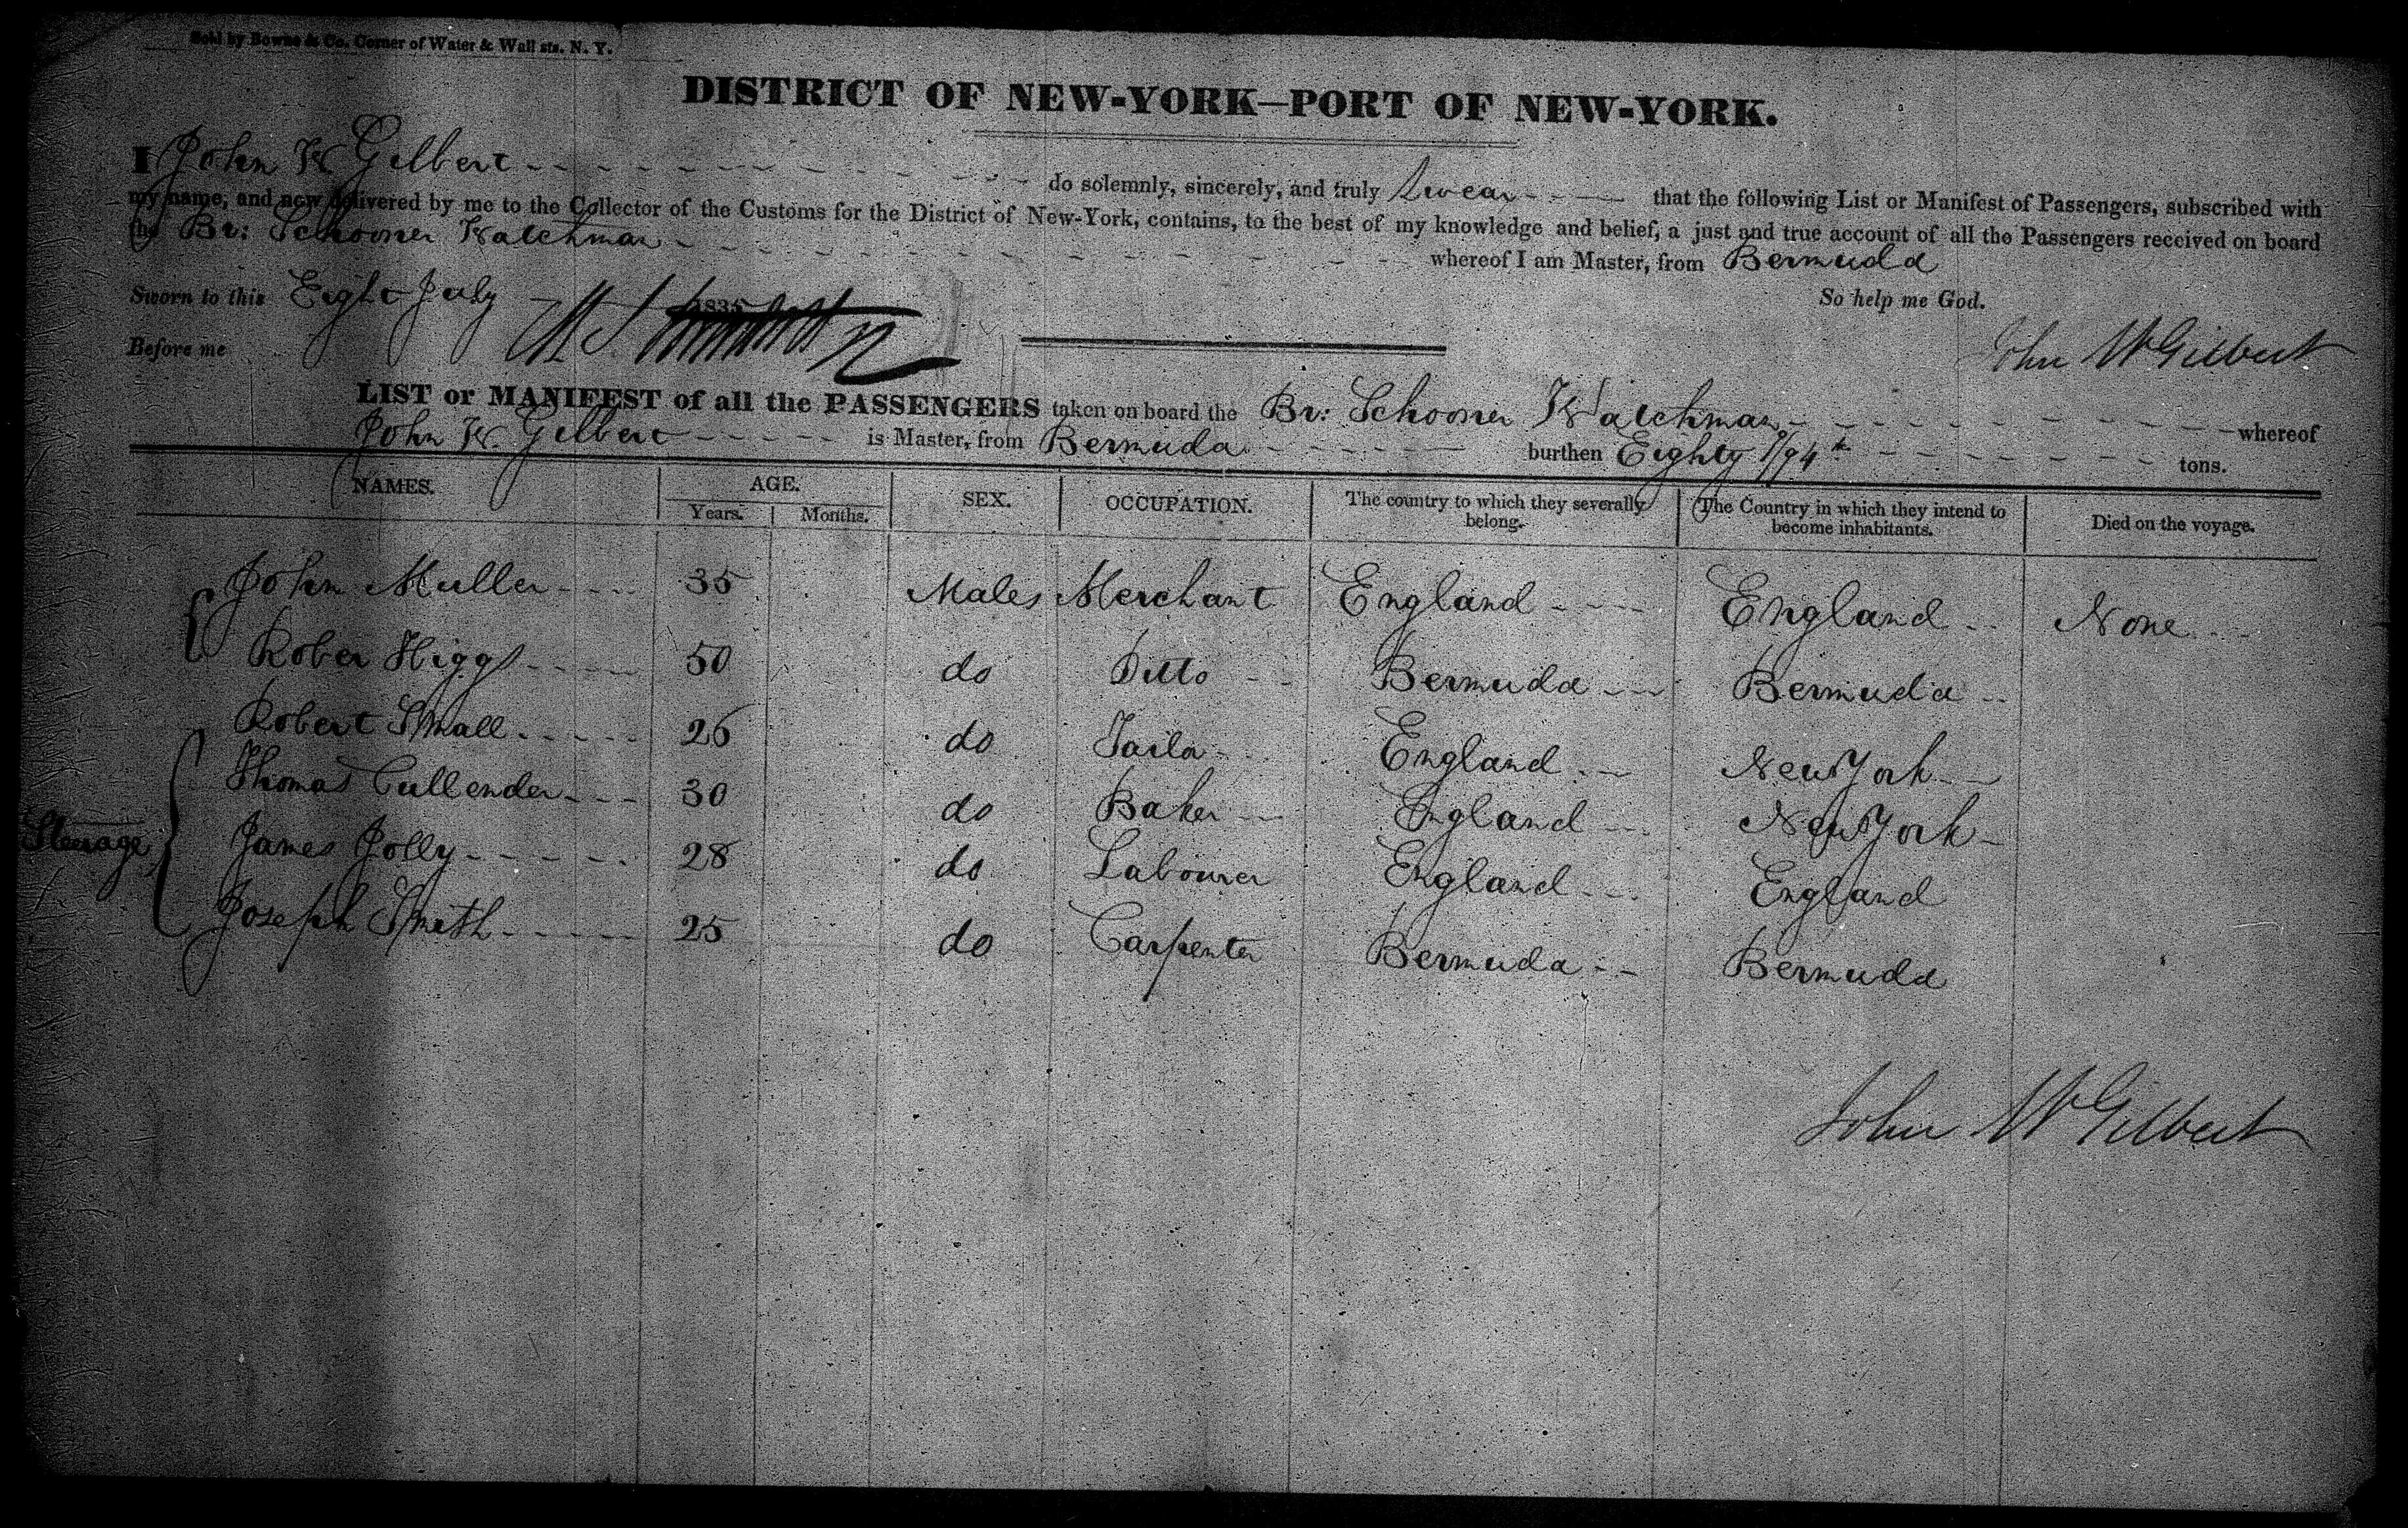 Sold by Bowne & Co. Corner of Water & Wall sts. N. Y.
DISTRICT OF NEW-YORK—PORT OF NEW-YORK.
I John W Gilbert do solemnly, sincerely, and truly Swear that the following List or Manifest of Passengers, subscribed with
my name, and now delivered by me to the Collector of the Customs for the District of New-York, contains, to the best of my knowledge and belief, a just and true account of all the Passengers received on board
the Br: Schooner Watchman whereof I am Master, from Bermuda
Sworn to this Eight July 1835 So help me God.
Before me John W Gilbert
LIST or MANIFEST of all the PASSENGERS taken on board the Br: Schooner Watchman whereof
John W. Gilbert is Master, from Bermuda burthen Eighty 1/94th tons.
NAMES. AGE. Years. Months. SEX. OCCUPATION. The country to which they severally belong. The Country in which they intend to become inhabitants. Died on the voyage.
John Muller 35 Males Merchant England England None
Rober Higgs 50 do Ditto Bermuda Bermuda
Robert Small 26 do Tailor England New York
Thomas Cullender 30 do Baker England New York
Steerage James Jolly 28 do Labourer England England
Joseph Smith 25 do Carpenter Bermuda Bermuda
John W Gilbert